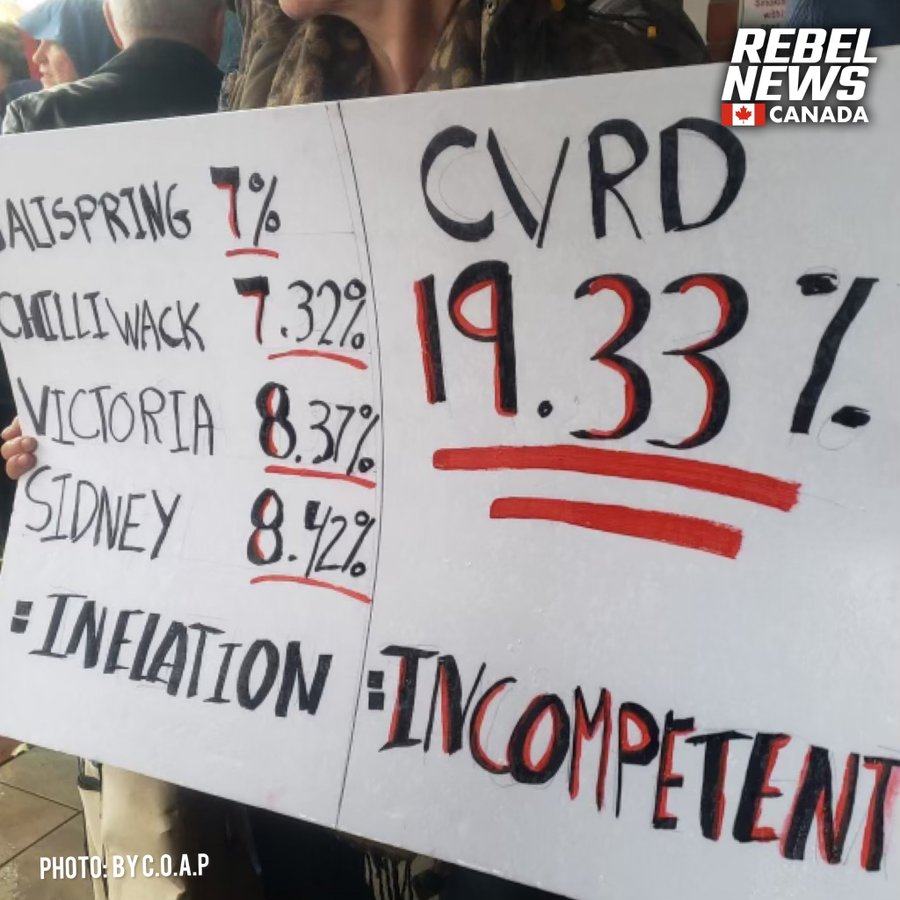 REBEL
NEWS
CANADA
SALTSPRING 7%
CHILLIWACK 7.32%
VICTORIA 8.37%
SIDNEY 8.42%
=INFLATION
CVRD
19.33%
=INCOMPETENT
PHOTO: BY C.O.A.P